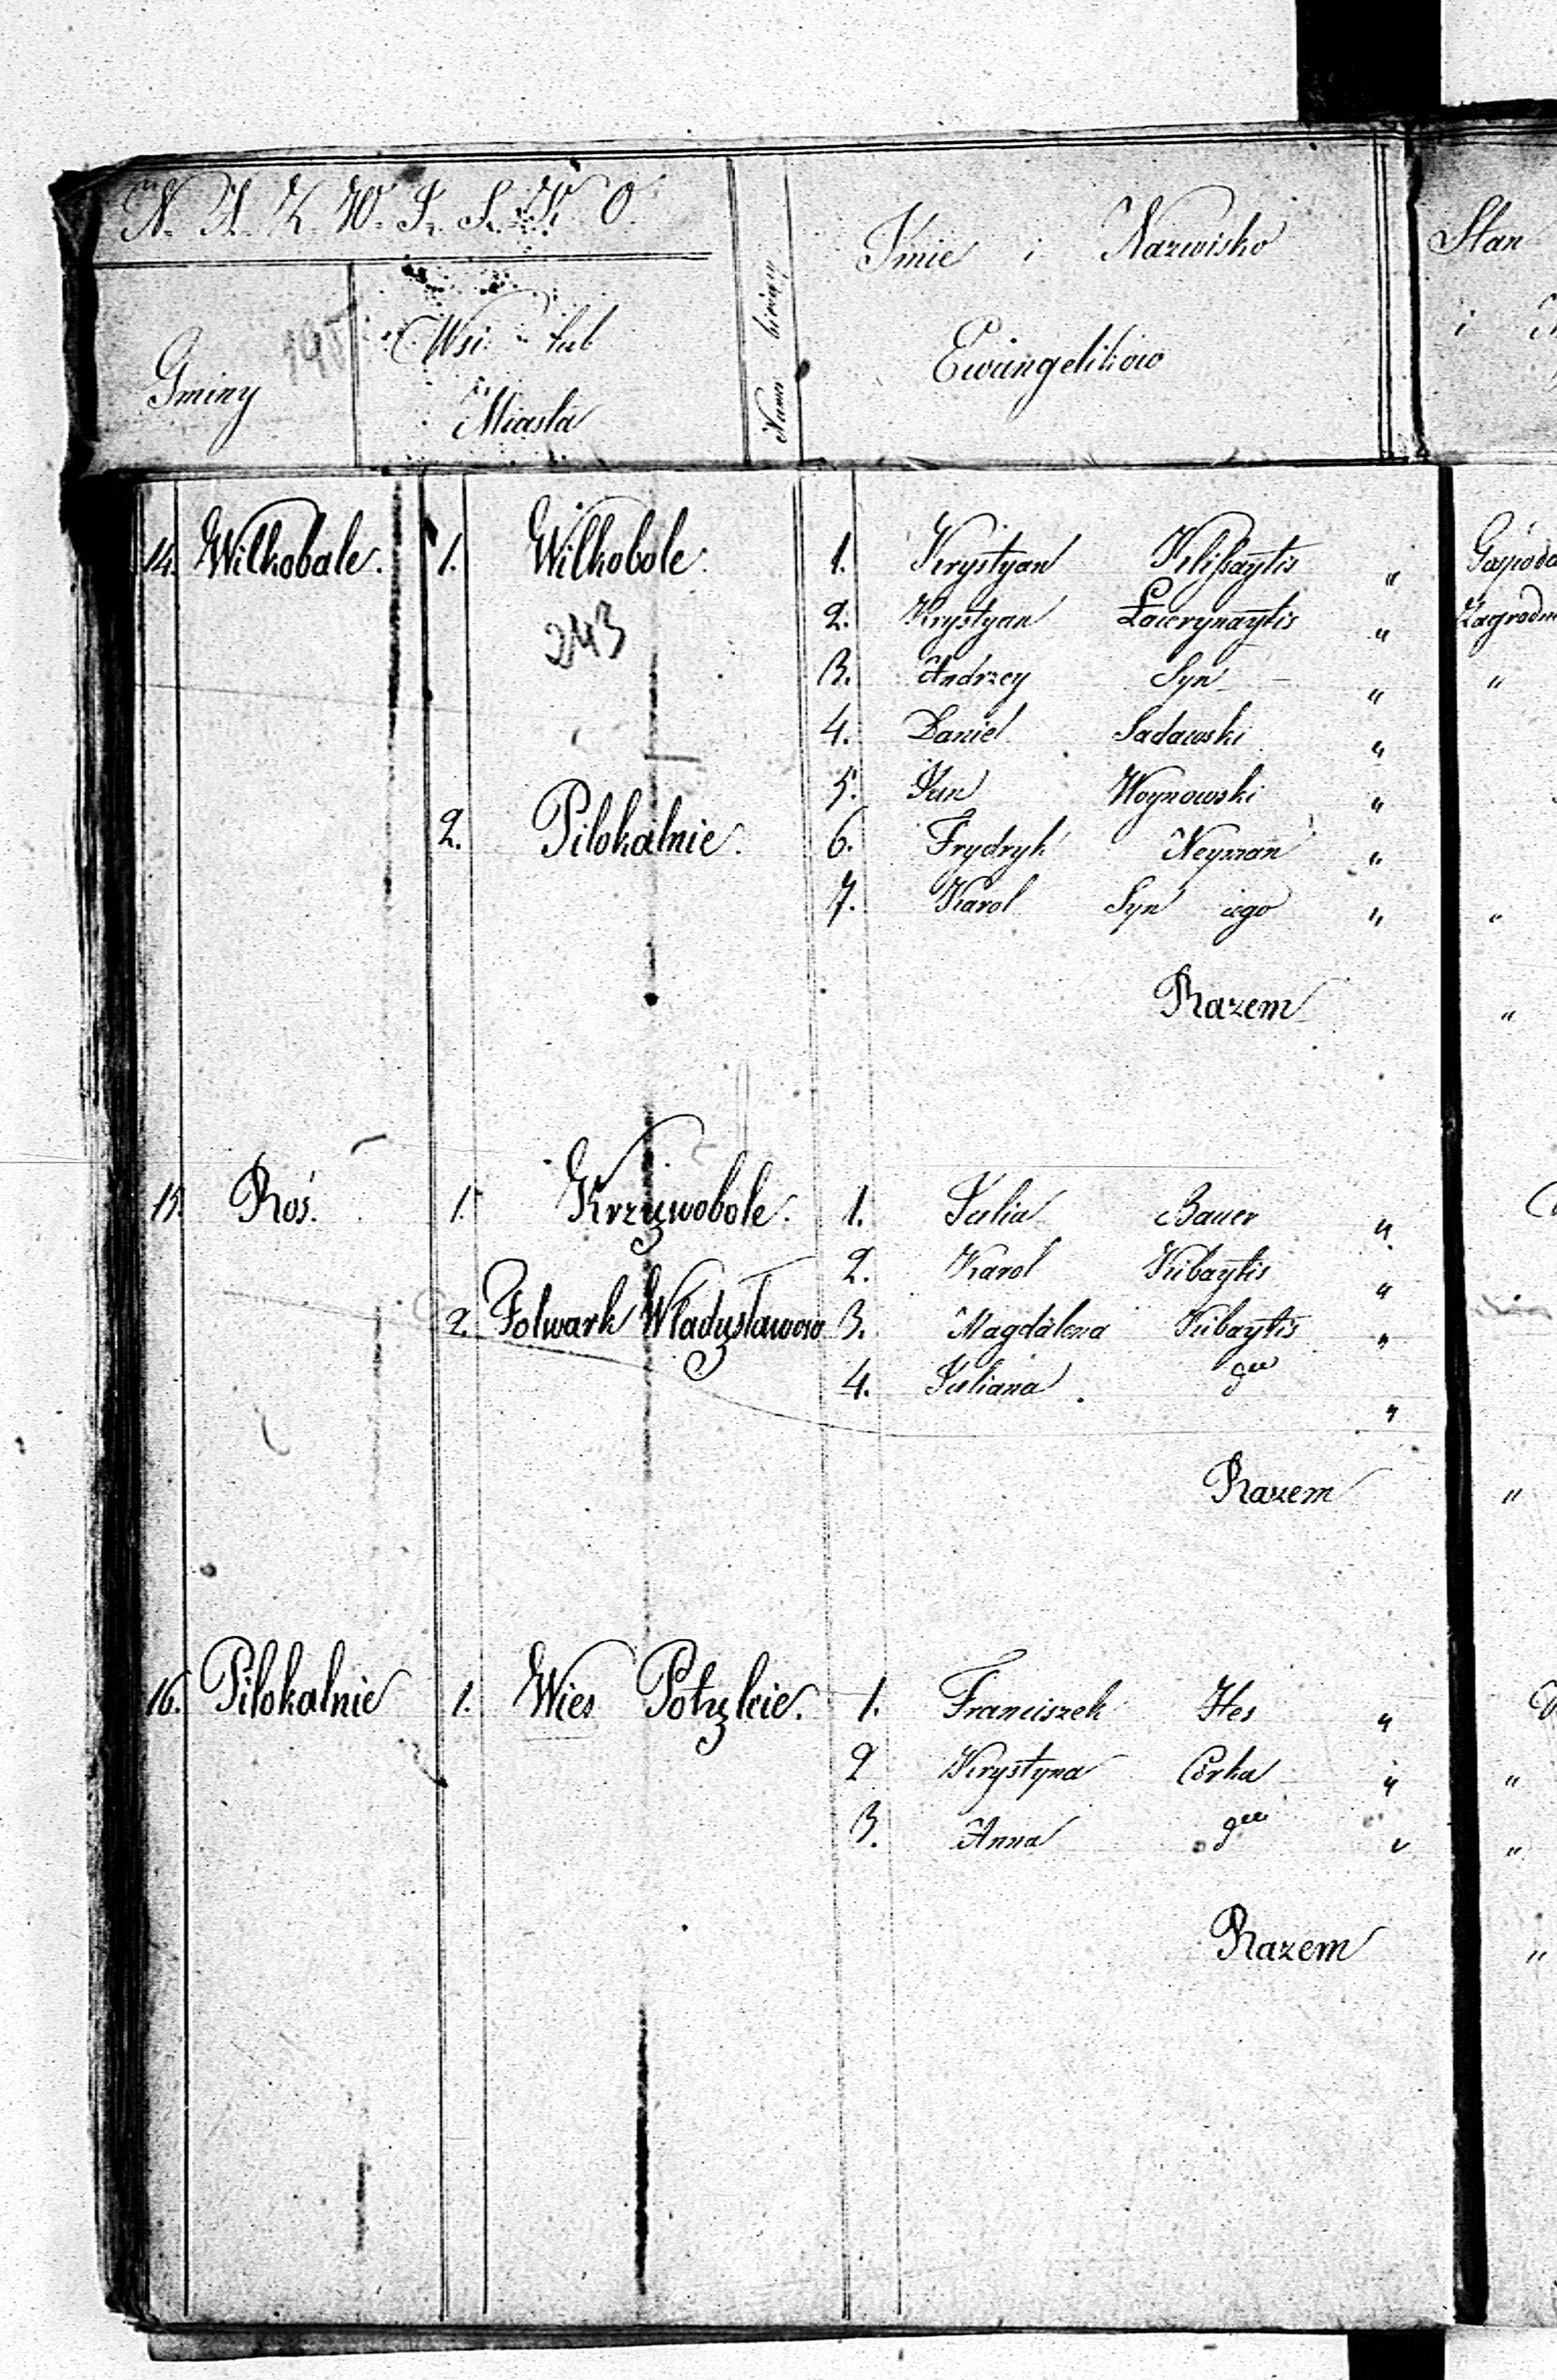 N. A. Z. W. I. S. K. O.
Gminy
Wsi lub
Miasta
Numer bieżący
Jmie i Nazwisko
Ewangelikow
Stan
i
14. Wilkobale. 1. Wilkobole. 1. Krystyan Kelissaytis " Gospoda
243 2. Krystyan Ławrynaytis " Zagrodni
3. Andrzey Syn " "
4. Daniel Sadawski "
5. Jan Woynowski "
2. Pilokalnie. 6. Frydryk Neyman "
7. Karol Syn iego " "
Razem "
15. Roś. 1. Krzywobole. 1. Julia Bauer "
2. Karol Kubaytis "
2. Folwark Władysławow 3. Magdalena Kubaytis "
4. Juliana "
Razem "
16. Pilokalnie 1. Wies Potyłcie. 1. Franciszek Hes "
2 Krystyna Córka " "
3. Anna " "
Razem "